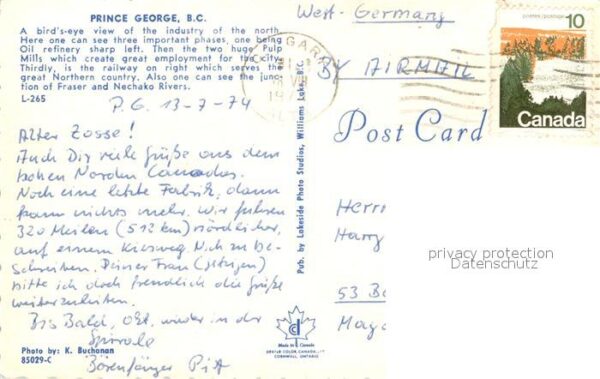 PRINCE GEORGE, B.C.
A bird's-eye view of the industry of the north.
Here one can see three important phases, one being
Oil refinery sharp left. Then the two huge Pulp
Mills which create great employment for the city.
Thirdly, is the railway on right which serves the
great Northern country. Also one can see the junc-
tion of Fraser and Nechako Rivers.
L-265
P.G. 13-7-74
Alter Zosse!
Auch Dir viele Grüße aus dem
hohen Norden Canadas.
Noch eine letzte Fabrik, dann
kann nichts mehr. Wir fuhren
320 Meilen (512 km) nördlicher,
auf einem Kiesweg. N. zu be-
schreiben. Deiner Frau
bitte ich doch freundlich die Grüße
weiterzuleiten.
Bis Bald, Okt. wieder in der
Spirale
Bärenfänger Pit
Photo by: K. Buchanan
85029-C
Pub. by Lakeside Photo Studios, Williams Lake, B.C.
Made in Canada
DEXTER COLOR CANADA
CORNWALL, ONTARIO
West-Germany
BY AIRMAIL
CALGARY
10
Canada
Post Card
Herrn
Harry
privacy protection
Datenschutz
53 Bo